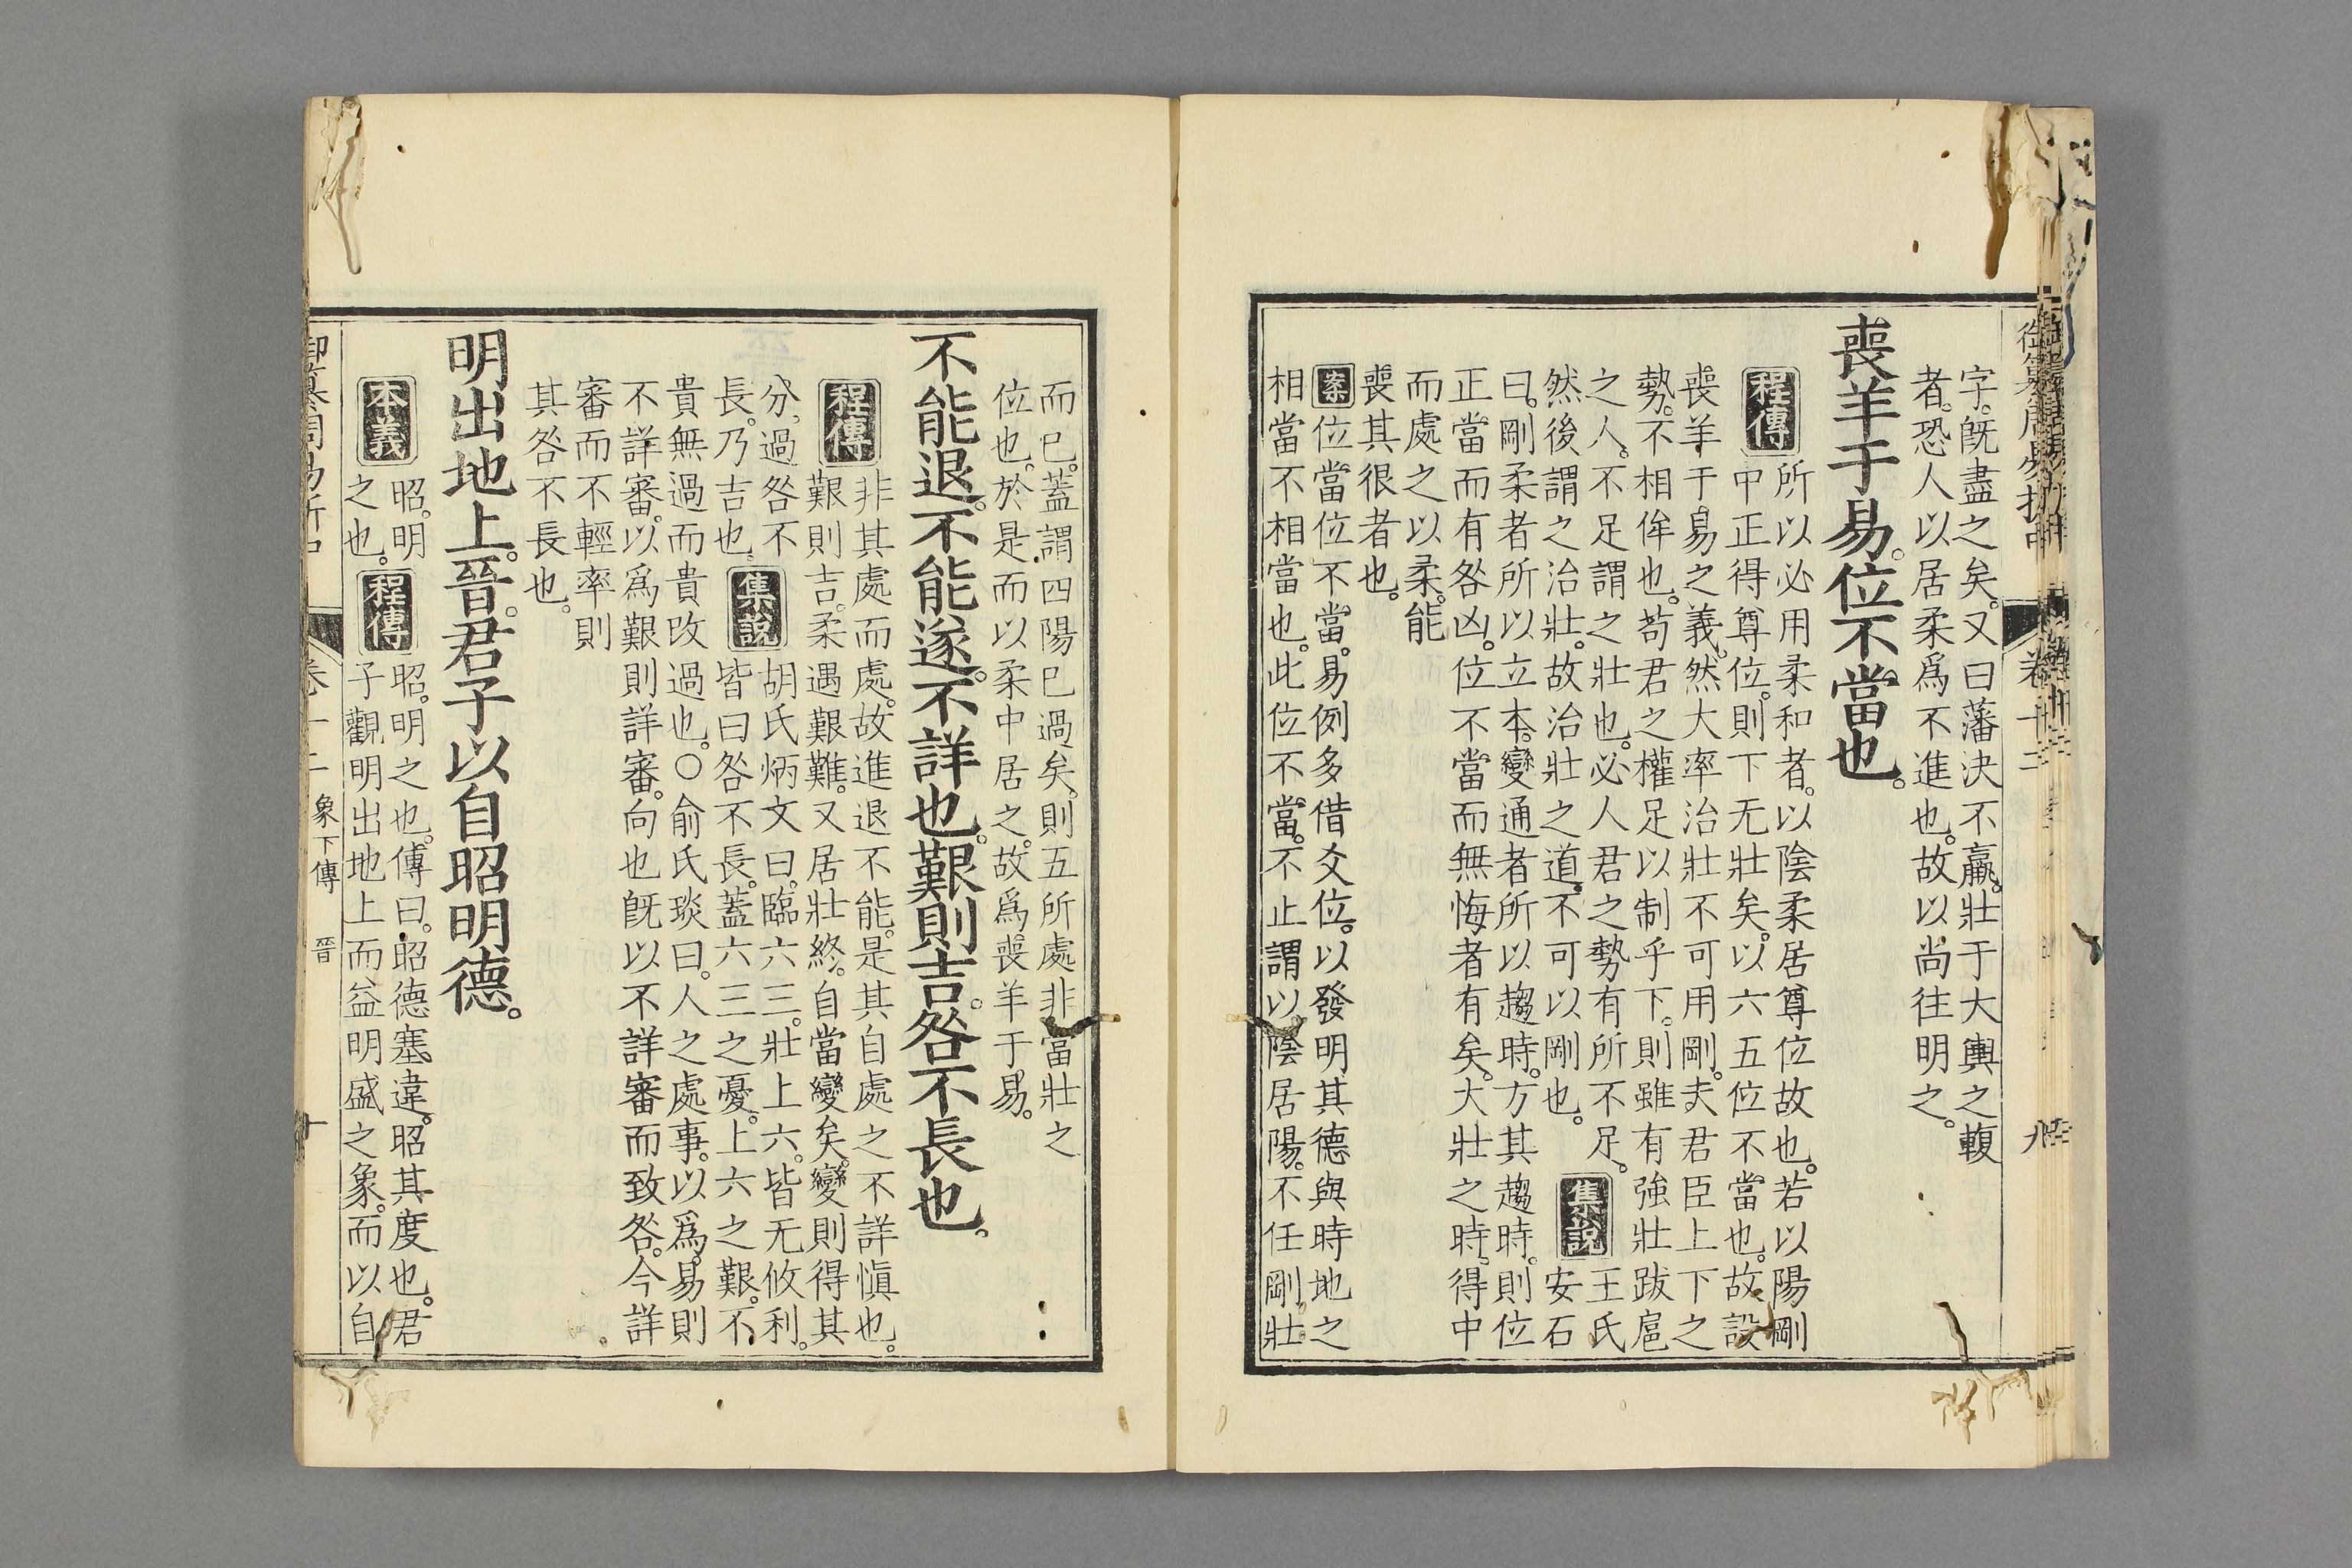 字。旣盡之矣。又曰藩決不羸。壯于大輿之輹
者。恐人以居柔爲不進也。故以尚往明之。
喪羊于易。位不當也。
程傳 所以必用柔和者。以陰柔居尊位故也。若以陽剛
中正得尊位。則下无壯矣。以六五位不當也。故設
喪羊于易之義。然大率治壯不可用剛。夫君臣上下之
勢。不相侔也。苟君之權足以制乎下。則雖有強壯跋扈
之人。不足謂之壯也。必人君之勢有所不足。
然後謂之治壯。故治壯之道。不可以剛也。
集說 王氏
安石
曰。剛柔者所以立本。變通者所以趨時。方其趨時。則位
正當而有咎凶。位不當而無悔者有矣。大壯之時。得中
而處之以柔。能
喪其很者也。
案 位當位不當。易例多借爻位。以發明其德與時地之
相當不相當也。此位不當。不止謂以陰居陽。不任剛壯
而已。蓋謂四陽已過矣。則五所處非當壯之
位也。於是而以柔中居之。故爲喪羊于易。
不能退。不能遂。不詳也。艱則吉。咎不長也。
程傳 非其處而處。故進退不能。是其自處之不詳愼也。
艱則吉。柔遇艱難。又居壯終。自當變矣。變則得其
分。過咎不
長。乃吉也。
集說 胡氏炳文曰。臨六三。壯上六。皆无攸利。
皆曰咎不長。蓋六三之憂。上六之艱。不
貴無過而貴改過也。〇俞氏琰曰。人之處事。以爲易則
不詳審。以爲艱則詳審。向也旣以不詳審而致咎。今詳
審而不輕率則
其咎不長也。
明出地上。晉。君子以自昭明德。
本義 昭。明
之也。
程傳 昭。明之也。傳曰。昭德塞違。昭其度也。君
子觀明出地上而益明盛之象。而以自
御纂周易折中 卷十二 象下傳 晉 十